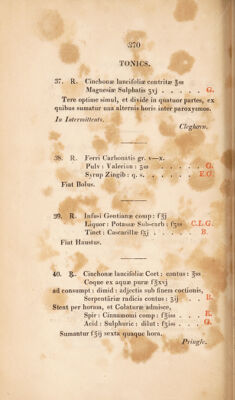 370
TONICS.
37. R. Cinchonæ lancifoliæ contritæ ʒss
Magnesiæ Sulphatis ʒvj . . . . . G.
Tere optime simul, et divide in quatuor partes, ex
quibus sumatur una alternis horis inter paroxymos.
In Intermittents.
Cleghorn.
38. R. Ferri Carbonatis gr. v—x.
Pulv: Valerian: ʒss . . . . . . G.
Syrup Zingib: q. s. . . . . . E.O.
Fiat Bolus.
39. R. Infusi Gentianæ comp: fʒj
Liquor: Potassæ Subcarb: fʒss C.L.G.
Tinct: Cascarillæ fʒj . . . . . B.
Fiat Haustus.
40. R. Cinchonæ lancifoliæ Cort: contus: ℥ss
Coque ex aquæ puræ f℥xvj
ad consumpt: dimid: adjectis sub finem coctionis,
Serpentáriæ radicis contus: ʒij . . B.
Stent per horam, et Colaturæ admisce,
Spir: Cinnamomi comp: f℥iss . . . E.
Acid: Sulphuric: dilut: fʒiss . . . G.
Sumantur f℥ij sexta quaque hora.
Pringle.